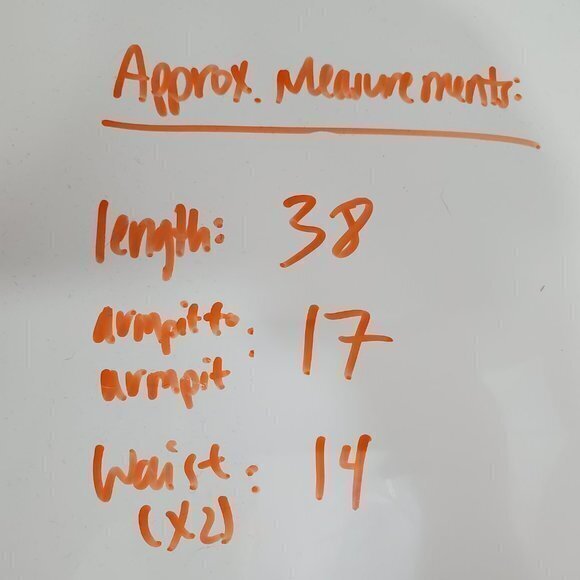 Approx. Measurements:
length: 38
armpit to
armpit : 17
Waist: 14
(X2)